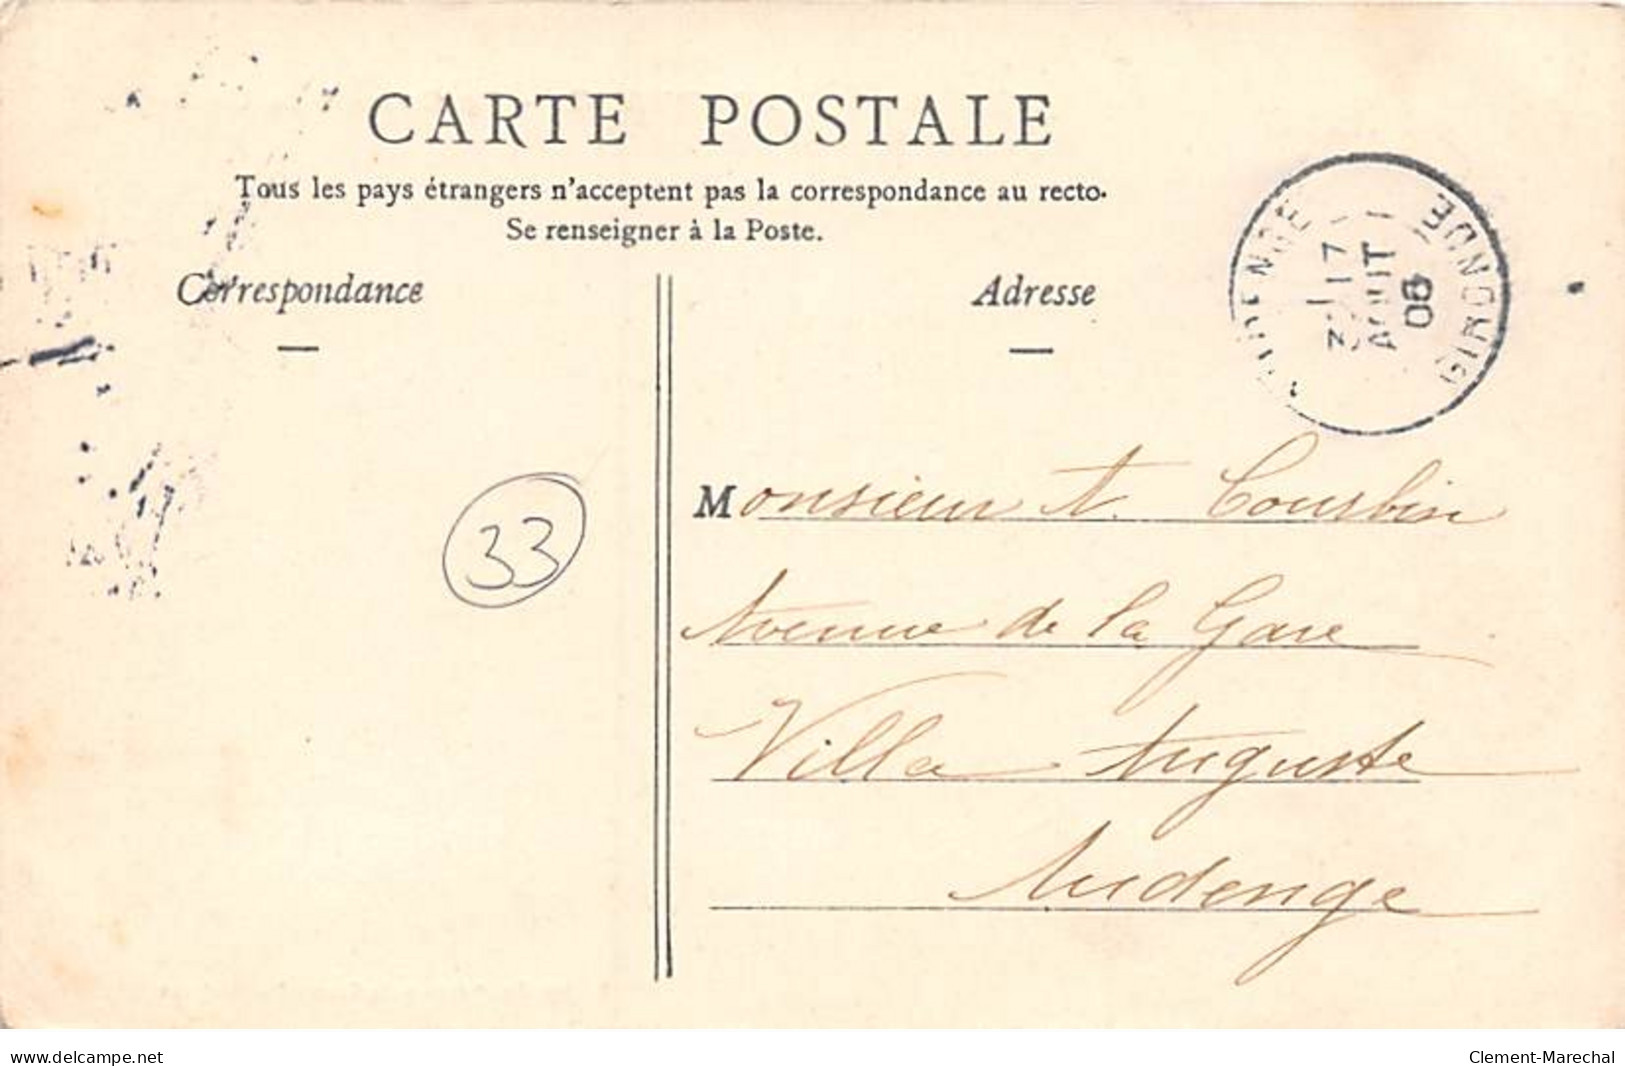 CARTE POSTALE
Tous les pays étrangers n'acceptent pas la correspondance au recto.
Se renseigner à la Poste.
Correspondance
Adresse
GIRONDE
17
AOUT
08
33
Monsieur A. Courbin
Avenue de la Gare
Villa Auguste
Audenge
delcampe.net
Clement-Marechal